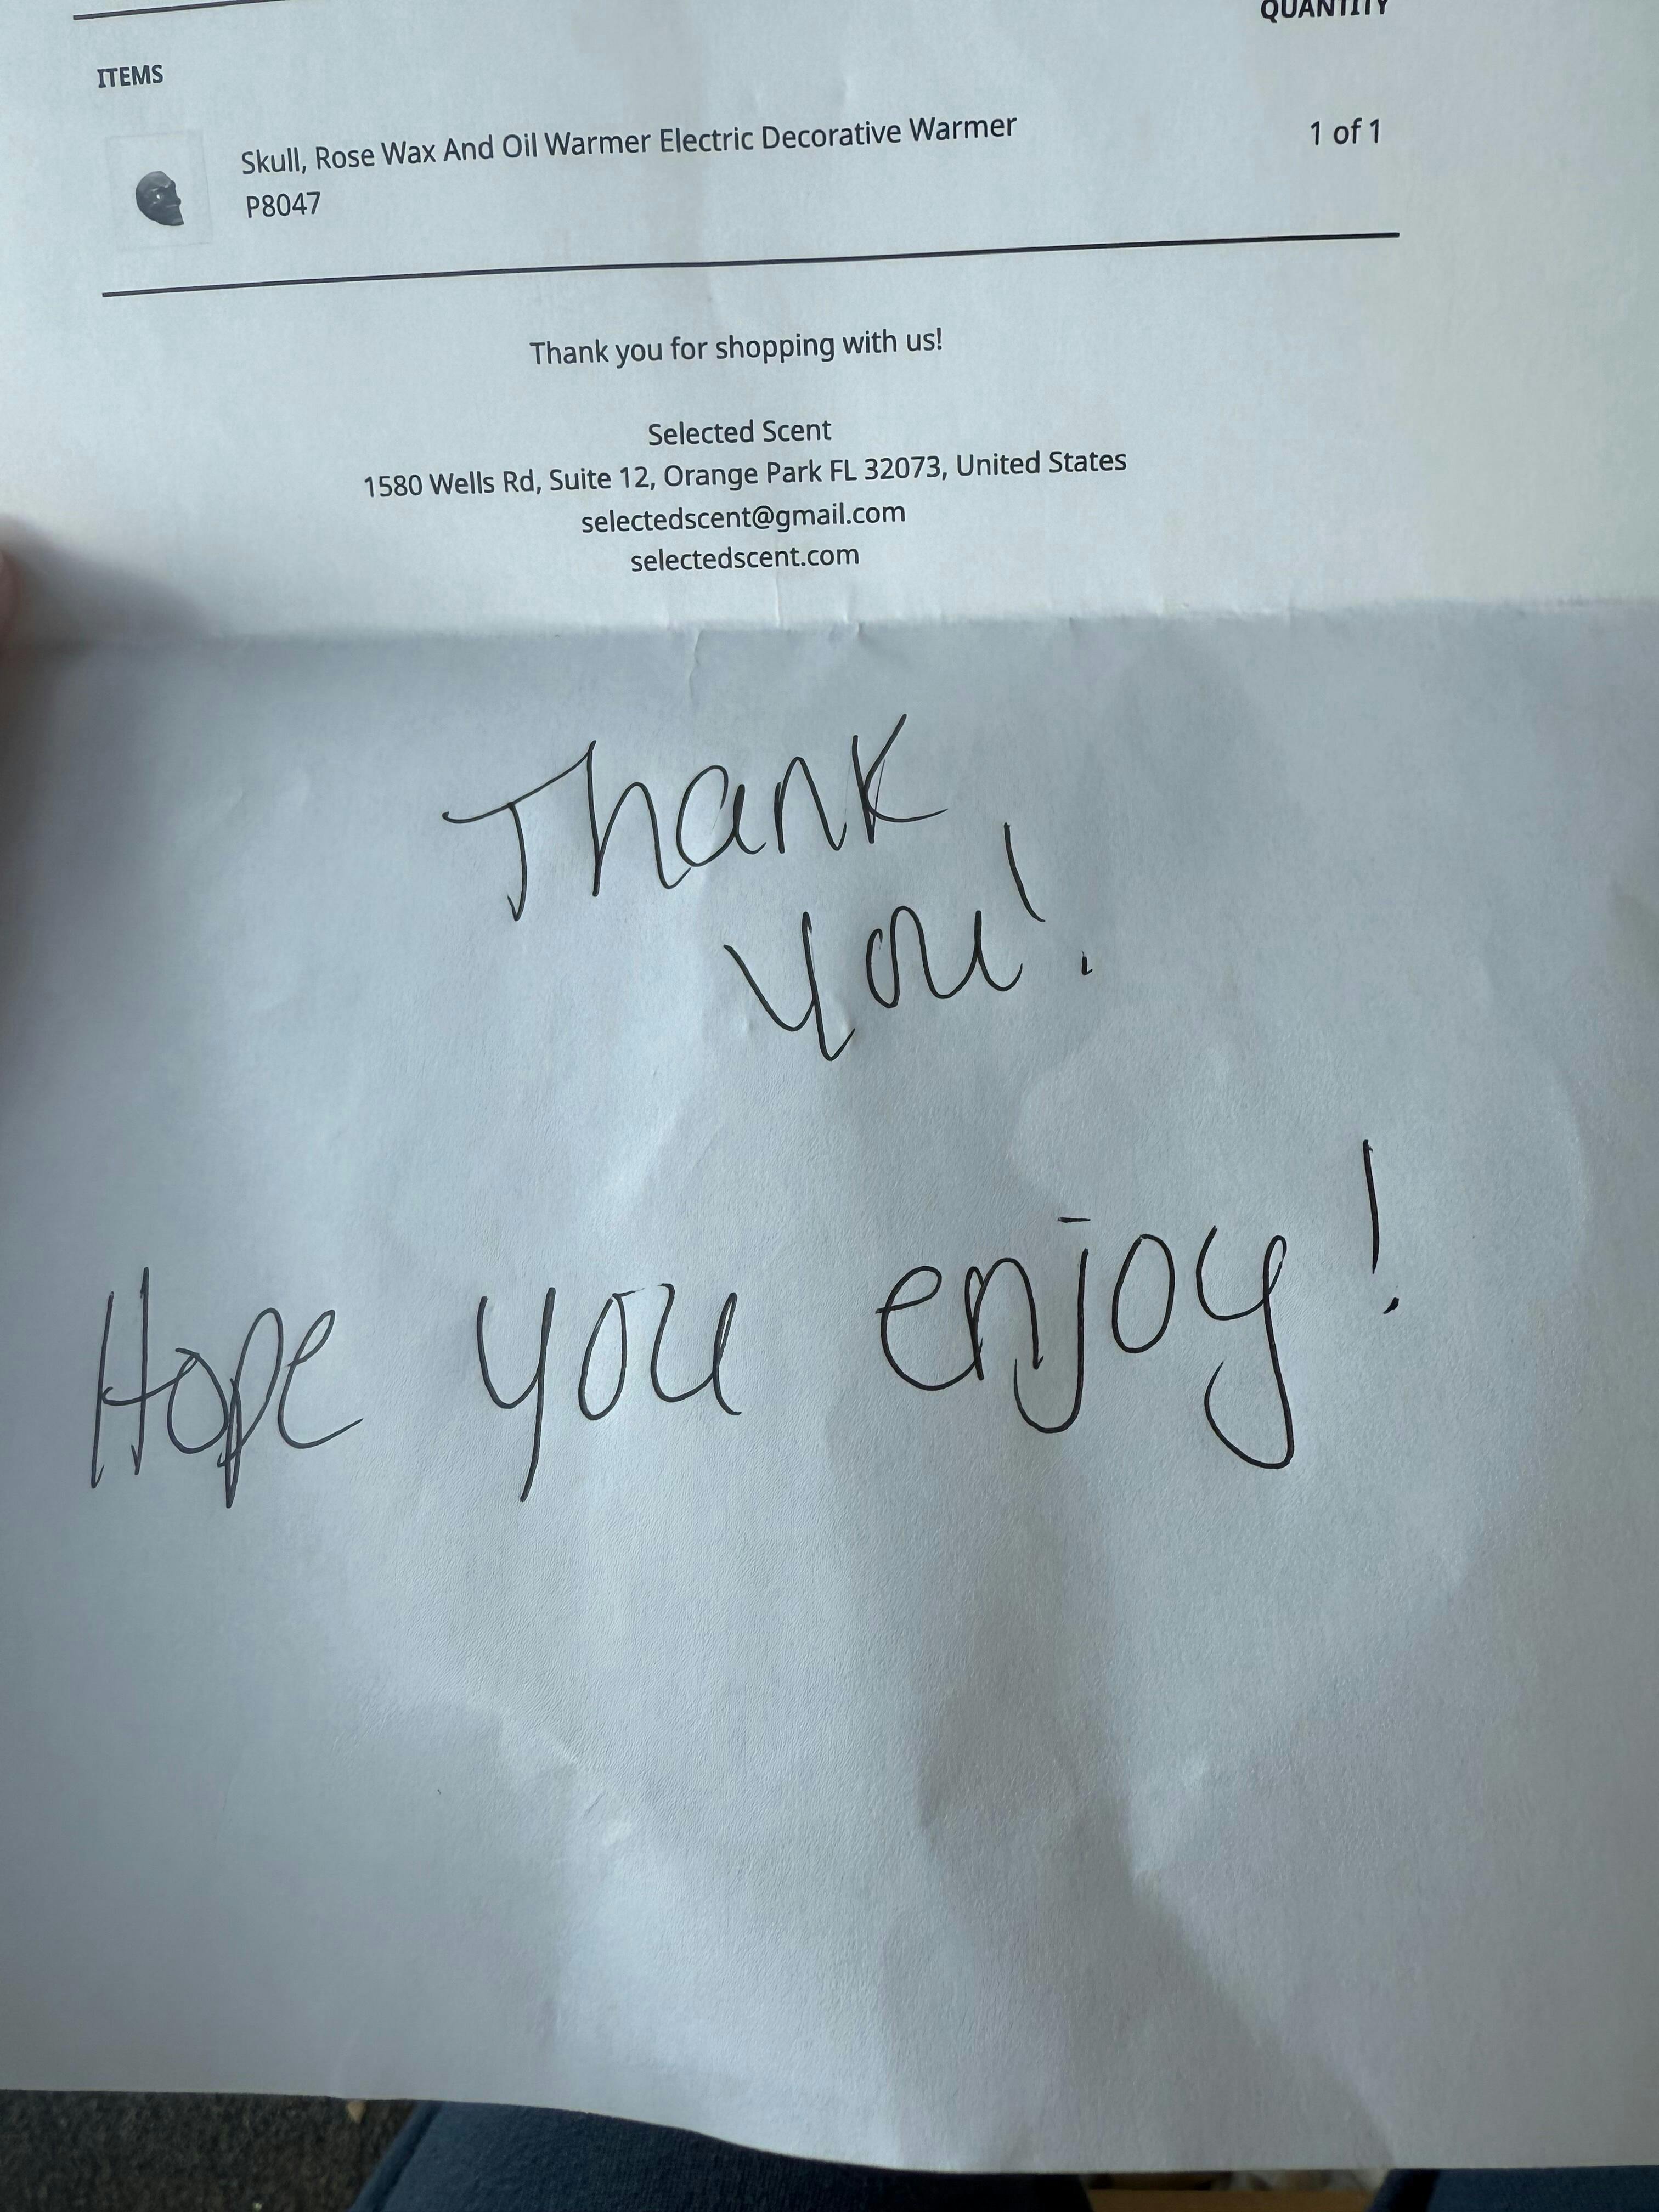 QUANTITY
ITEMS
Skull, Rose Wax And Oil Warmer Electric Decorative Warmer
1 of 1
P8047
Thank you for shopping with us!
Selected Scent
1580 Wells Rd, Suite 12, Orange Park FL 32073, United States
selectedscent@gmail.com
selectedscent.com
Thank
you!
Hope you enjoy!